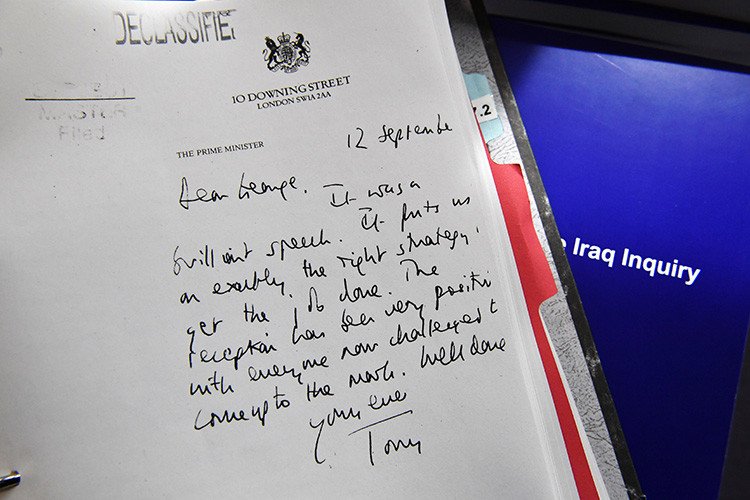 DECLASSIFIED
10 DOWNING STREET
LONDON SW1A 2AA
MASTER
Filed
THE PRIME MINISTER
12 September
Dear George. It was a
brilliant speech. It puts us
on exactly the right strategy,
get the job done. The
reception has been very positive
with everyone now challenged to
come up to the mark. Well done
Yours ever
Tony
7.2
Iraq Inquiry